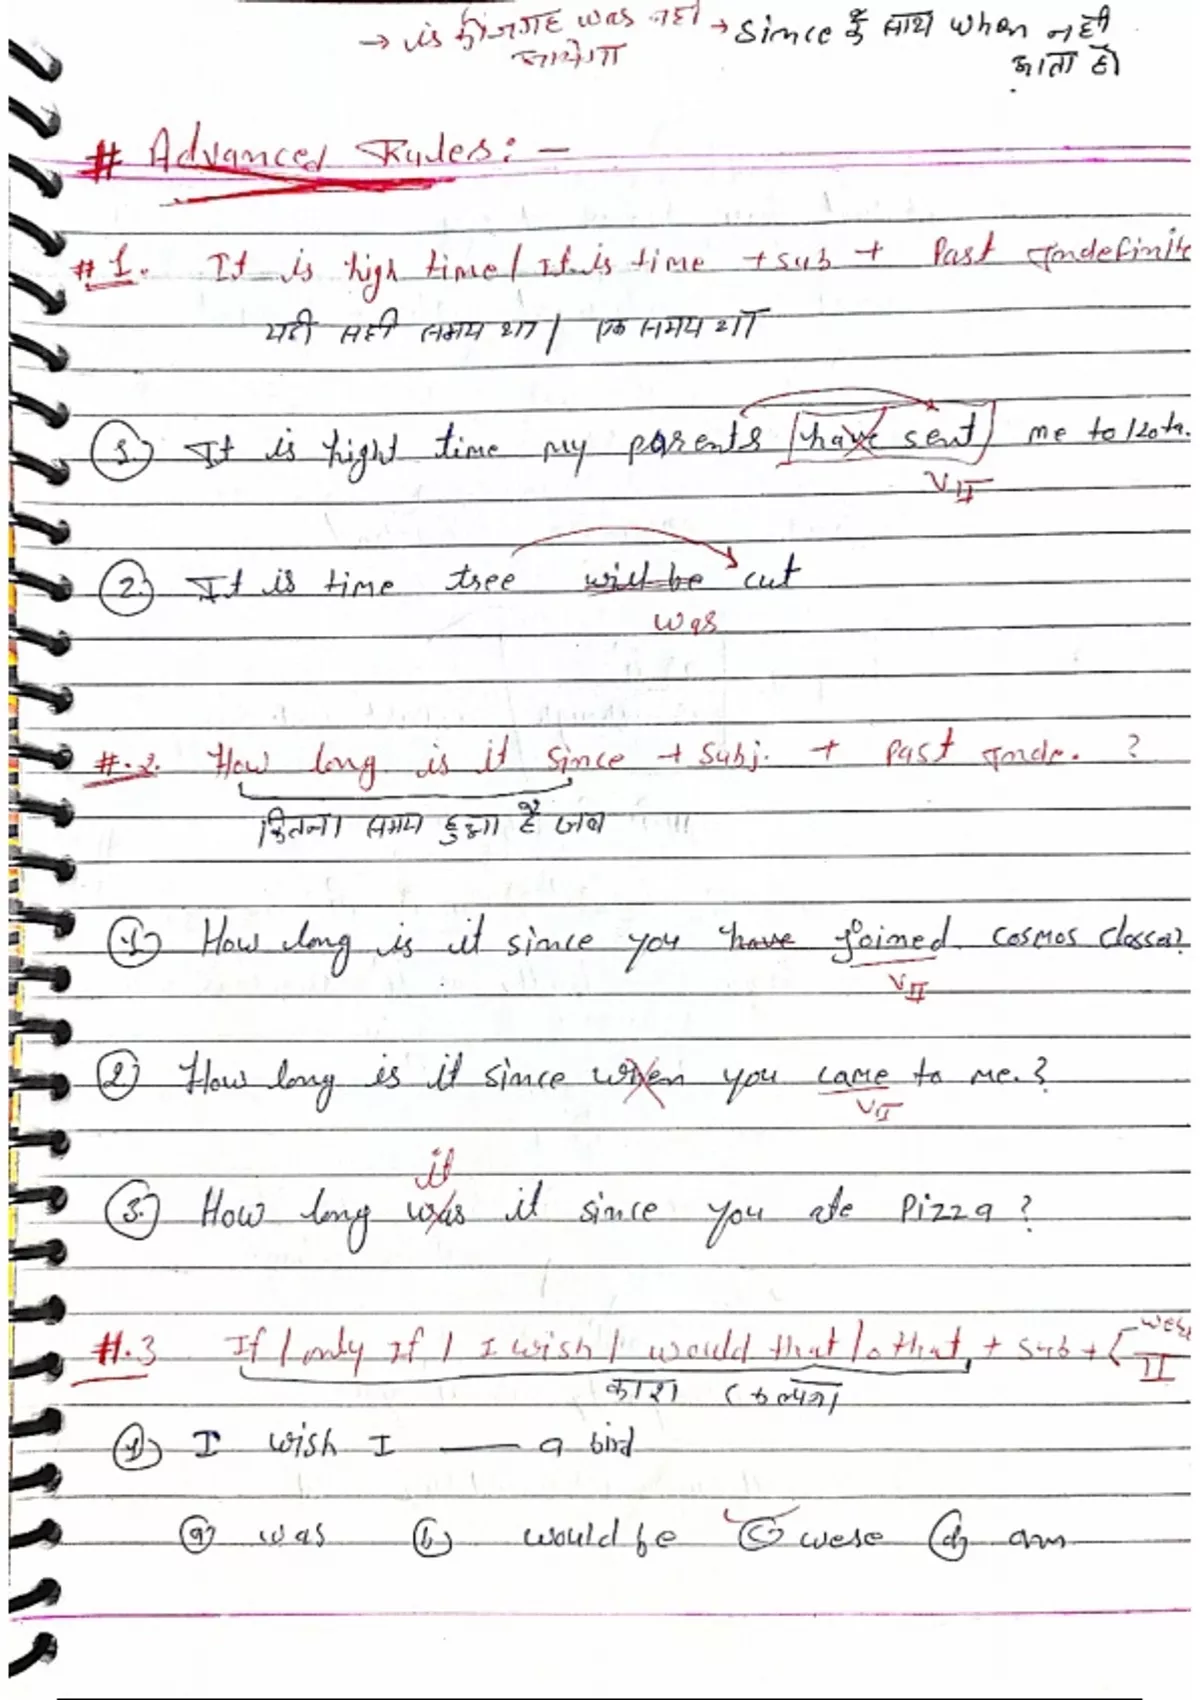 → is की जगह was नही → Since के साथ when नही
आयेगा आता है।
# Advanced Rules: –
#1. It is high time / It is time + sub + Past Indefinite
यही सही समय था / एक समय था
1. It is hight time my parents have sent me to Kota.
VII
2. It is time tree will be cut
was
#.2. How long is it since + Subj. + Past Inde. ?
कितना समय हुआ है जब
1. How long is it since you have joined cosmos classes?
VII
2. How long is it since when you came to me.?
VII
it
3. How long was it since you ate Pizza ?
#.3 If / only If / I wish / would that / o that + Sub + were
II
काश (कल्पना)
1. I wish I —— a bird
(a) was (b) would be (c) were (d) am